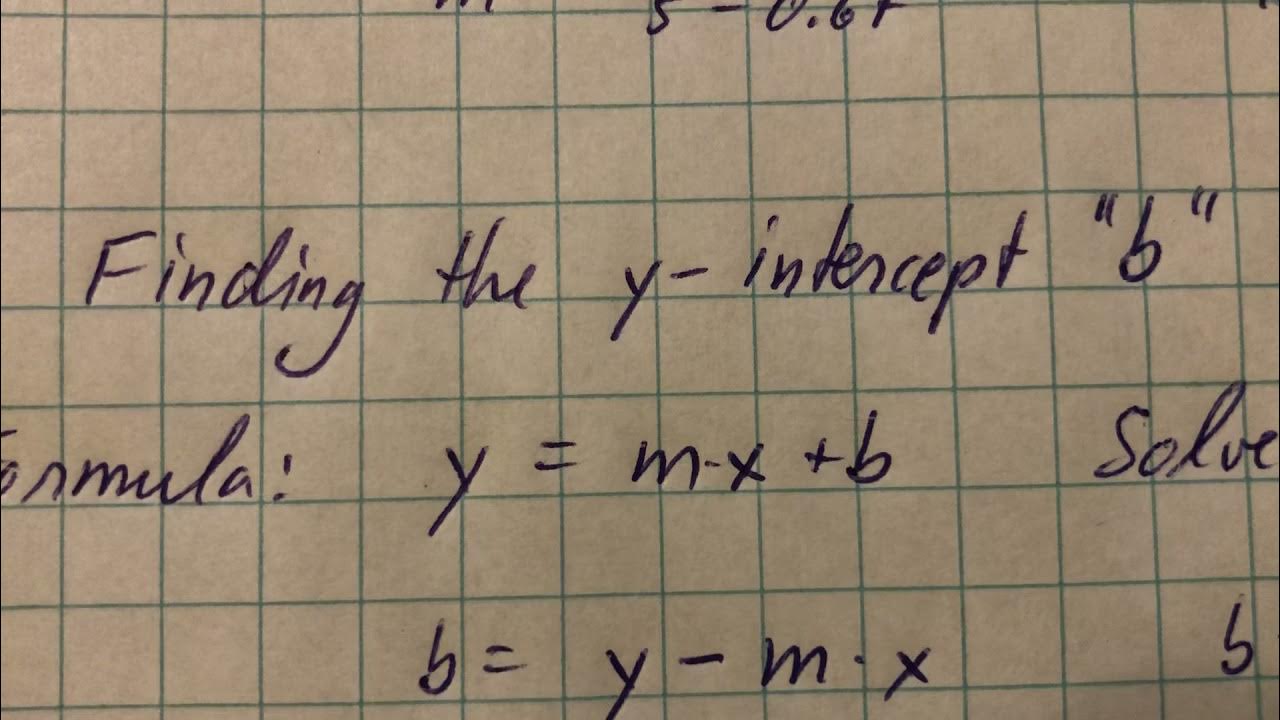 Finding the y-intercept "b"
Formula: y = m·x + b Solve
b = y - m·x b